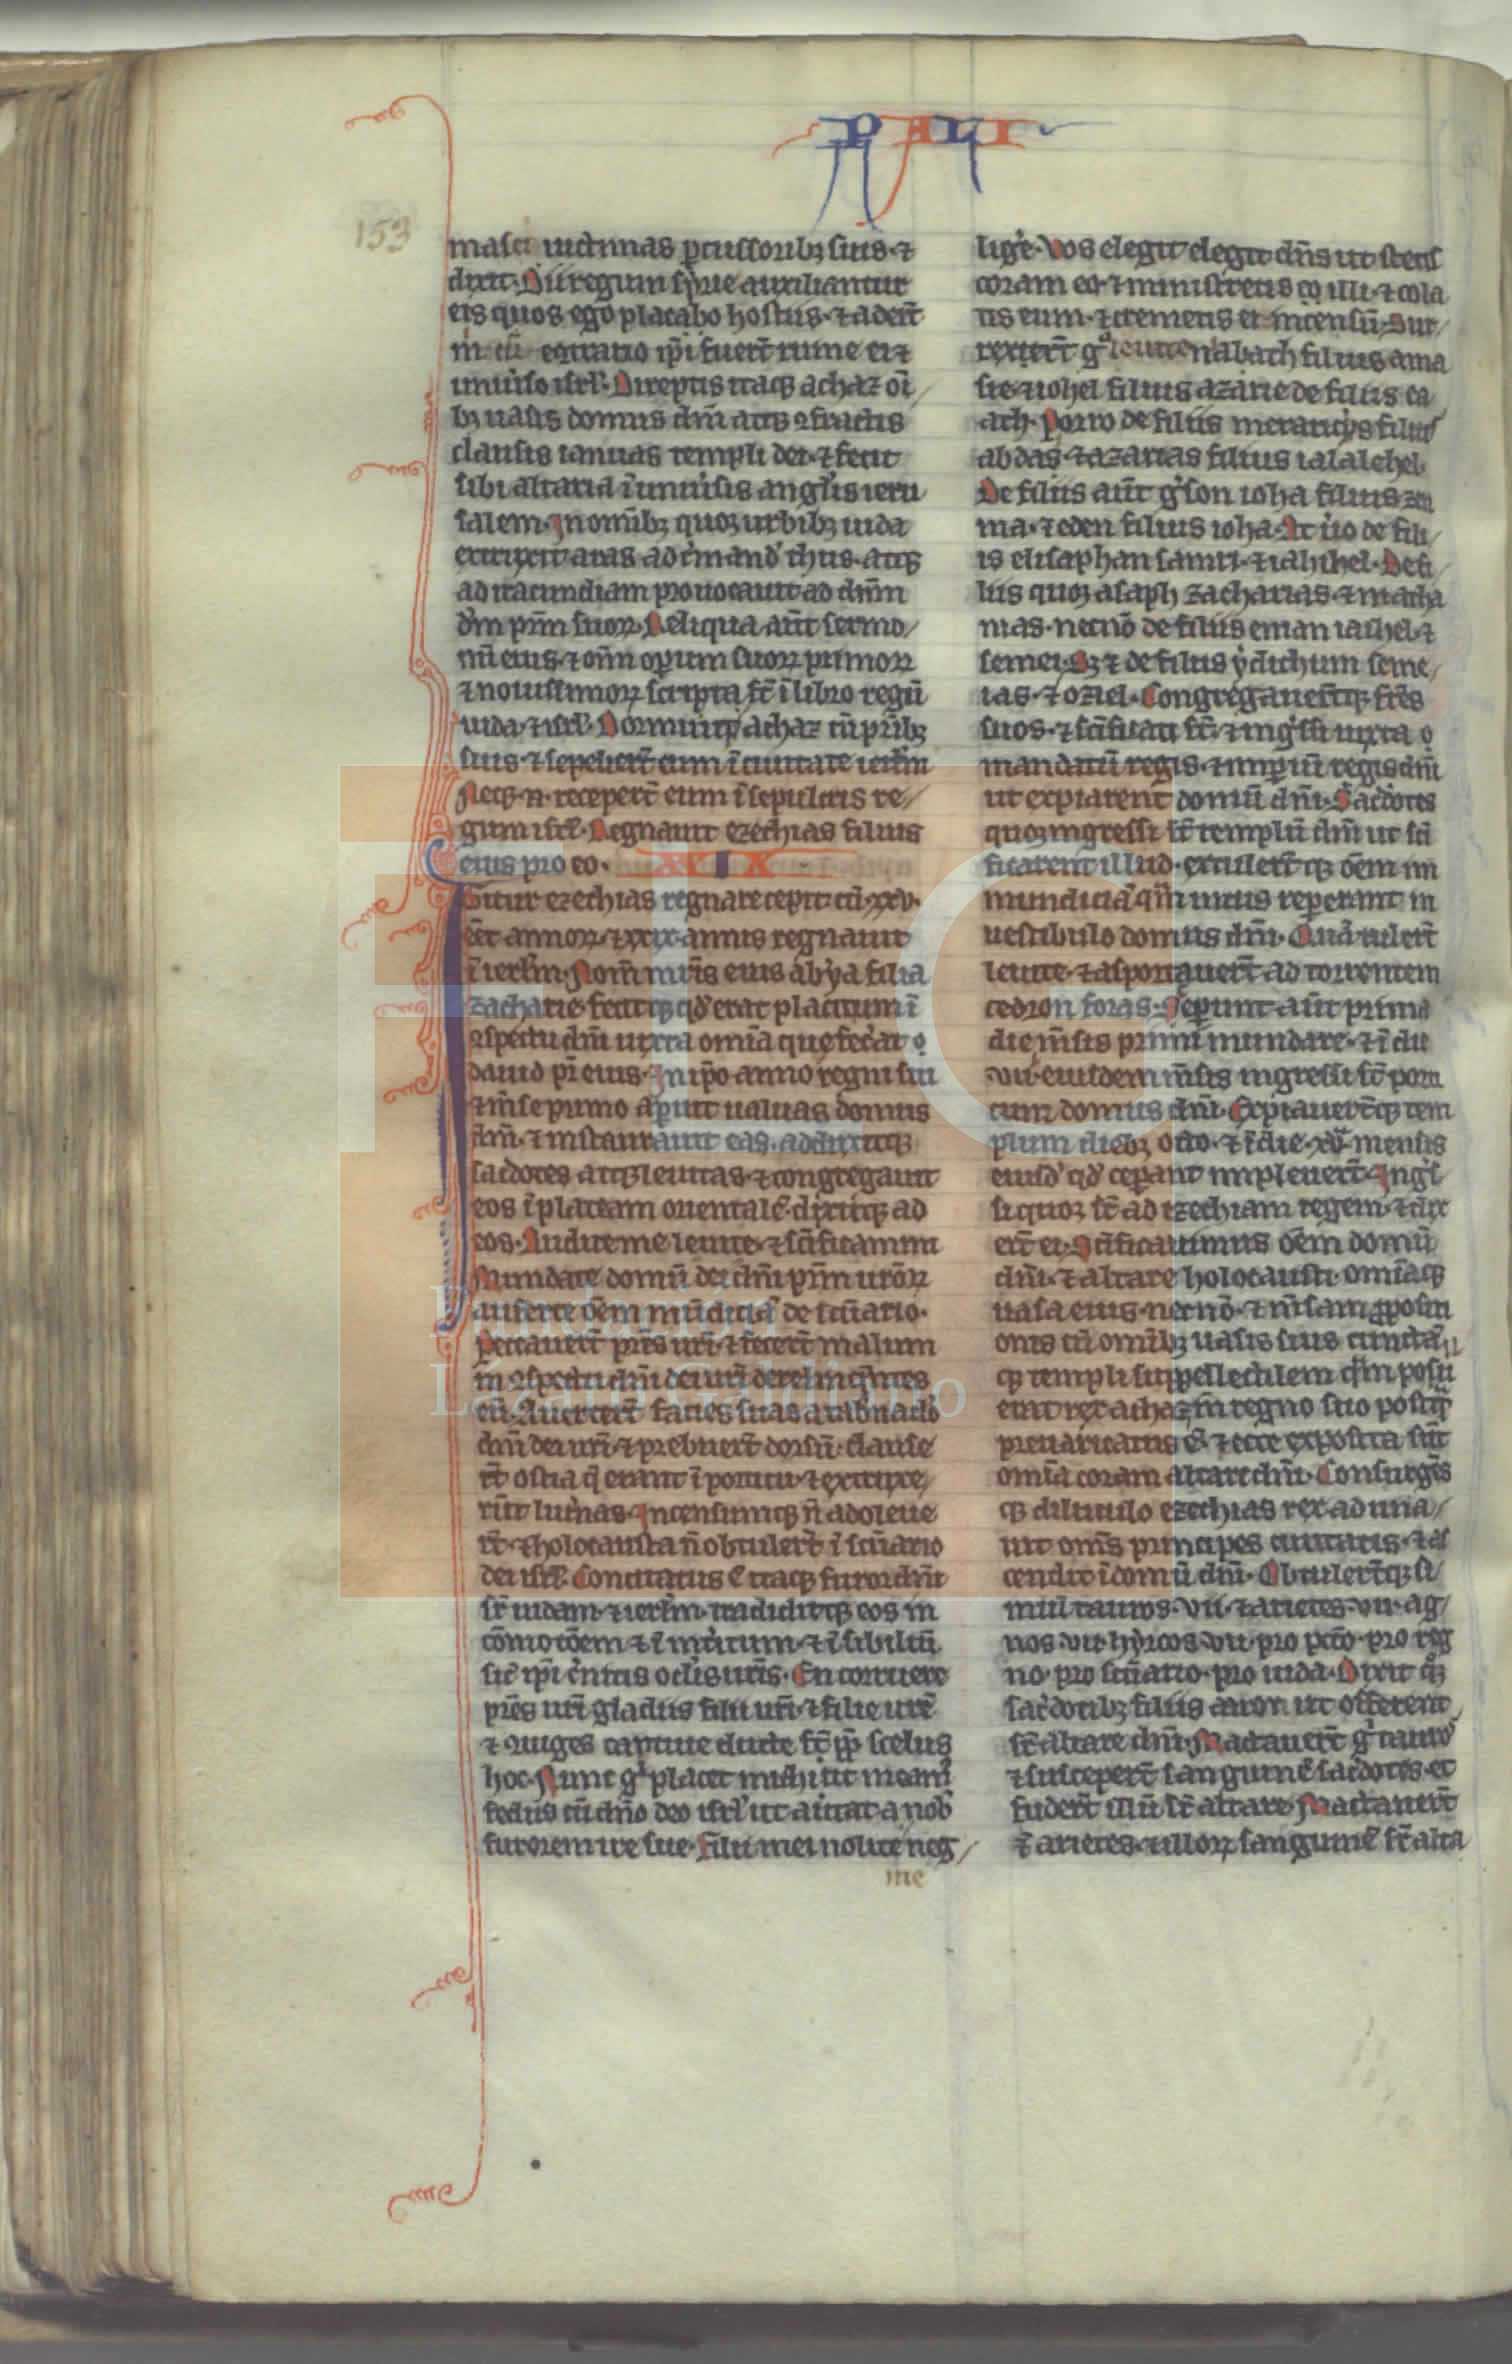 PALI
153
masci uictimas ꝑcussoribꝫ suis ⁊
dixit. Dii regum syrie auxiliantur
eis quos ego placabo hostiis ⁊ adert̄
m̄ cū econtrario ip̄i fuert̄ ruine ei ⁊
uniuˀso isrl̓. Direptis itaqꝫ achaz oī
bꝫ uasis domus dn̄i atqꝫ ꝯfractis
clausis ianuas templi dei ⁊ fecit
sibi altaria ī uniuˀsis anglˀis ieru
salem. In omībꝫ quoqꝫ urbibꝫ iuda
extruxit aras ad cˀmand̓ thus atqꝫ
ad iracundiam prouocauit ad dn̄m
dm̄ prm̄ suoꝝ. Reliqua aut̄ sermo
nū eius ⁊ om̄ operum suoꝝ primoꝝ
⁊ nouissimoꝝ scripta st̄ ī libro regū
iuda ⁊ isrl̓. Dormiuitqꝫ achaz cū prīibꝫ
suis ⁊ sepeliert̄ eum ī ciuitate ierlm̄
Neqꝫ n̄ recepert̄ eum ī sepulcris re
gum isrl̓. Regnauit ezechias filius
eius pro eo. XXIX
Igitur ezechias regnare cepit cū .xxv.
eēt annoꝝ ⁊ xxix annis regnauit
ī ierlm̄. Nom̄ mr̄is eius abya filia
zacharie. fecitqꝫ qd̓ erat placitum ī
ꝯspectu dn̄i iuxta omīa que fecˀat
dauid pr̄ eius. In ip̄o anno regni sui
⁊ m̄se primo aꝑuit ualuas domus
dn̄i ⁊ instaurauit eas. adduxitqꝫ
sacˀdotes atqꝫ leuitas ⁊ congregauit
eos ī plateam orientalē dixitqꝫ ad
eos. Audite me leuite ⁊ sc̄ificamini
Mundate domū dei dn̄i prm̄ ur̄oꝝ
auferte ōem mūdiciā de sc̄uario.
Peccauert̄ pr̄es ur̄i ⁊ fecert̄ malum
in ꝯspectu dn̄i dei ur̄i derelinqˀntes
eū. Auertert̄ facies suas a tab̓nacl̓o
dn̄i dei ur̄i ⁊ prebuert̄ dorsū. Clause
rt̄ ostia q̄ erant ī porticu ⁊ extinxe
rūt lucˀnas. Incensumqꝫ n̄ adoleue
rt̄ ⁊ holocausta n̄ obtulert̄ ī sc̄uario
dei isrl̓. Concitatus ē itaqꝫ furor dn̄i
sr̄ iudam ⁊ ierlm̄ tradiditqꝫ eos in
cōmotōem ⁊ ī intˀitum ⁊ ī sibilū
sic̓ ip̄i cˀnitis oclˀis ur̄is. En corruere
pr̄es ur̄i gladiis filii ur̄i ⁊ filie ur̄e
⁊ ꝯiuges captiue ducte st̄ ꝓp̄ scelus
hoc. Nunc gˀ placet michi ut ineam̓
fedus cū dn̄o deo isrl̓ ut auˀtat a nob̓
furorem ire sue. Filii mei nolite neg
me
ligˀe. Vos elegit elegit dn̄s ut stetis
coram eo ⁊ ministretis illi ⁊ cola
tis eum ⁊ cremetis ei incensū. Sur
rexert̄ gˀ leuite nabach filius ama
sie ⁊ iohel filius azarie de filiis ca
ach. Porro de filiis merari cys filius
abdas ⁊ azarias filius ialalehel.
De filiis aut̄ gˀson ioha filius zem
ma ⁊ eden filius ioha. At uˀo de fili
is elisaphan samri ⁊ iahihel. De fi
liis quoqꝫ asaph zacharias ⁊ matha
nias necnō de filiis eman iaihel ⁊
semei. Sꝫ ⁊ de filiis ydichum seme
ias ⁊ oziel. Congregauert̄qꝫ frēs
suos ⁊ sc̄ificati st̄ ⁊ ingˀssi iuxta
mandatū regis ⁊ imꝑiū regis dn̄i
ut expiarent domū dn̄i. Sacˀdotes
quoqꝫ ingressi st̄ templū dn̄i ut sc̄i
ficarent illud. extulert̄qꝫ ōem in
mundiciā qˀm intus repererant in
uestibulo domus dn̄i. Quā tulert̄
leuite ⁊ asportauert̄ ad torrentem
cedron foras. Ceꝑunt aut̄ prima
die m̄sis primi mundare ⁊ ī die
.viii. eiusdem m̄sis ingressi st̄ porti
cum domus dn̄i. Expiauert̄qꝫ tem
plum diebꝫ octo ⁊ ī die .xvi. mensis
eiusd̓ qd̓ ceperant impleuert̄. Ingˀs
si quoqꝫ st̄ ad ezechiam regem ⁊ dix
ert̄ ei. Sc̄ificauimus ōem domū
dn̄i ⁊ altare holocausti omīaqꝫ
uasa eius necnō ⁊ m̄sam ꝓpositi
onis cū omībꝫ uasis suis cunctā
qꝫ templi suppellectilem qˀm pollu
erat rex achaz in regno suo postqˀ
preuaricatus ē ⁊ ecce exposita sūt
omīa coram altare dn̄i. Consurgēs
qꝫ diluculo ezechias rex aduna
uit omēs principes ciuitatis ⁊ as
cendit ī domū dn̄i. Obtulert̄qꝫ si
mul tauros .vii. ⁊ arietes .vii. ag
nos .vii. hyrcos .vii. pro pctō pro reg
no pro sc̄uario pro iuda. Dixit qꝫ
sacˀdotibꝫ filiis aaron ut offerent
sr̄ altare dn̄i. Mactauert̄ gˀ tauros
⁊ suscepert̄ sanguinē sacˀdotes et
fudert̄ illū sr̄ altare. Mactauert̄
⁊ arietes ⁊ illoꝝ sanguinē sr̄ alta
FLG
Lázaro Galdiano